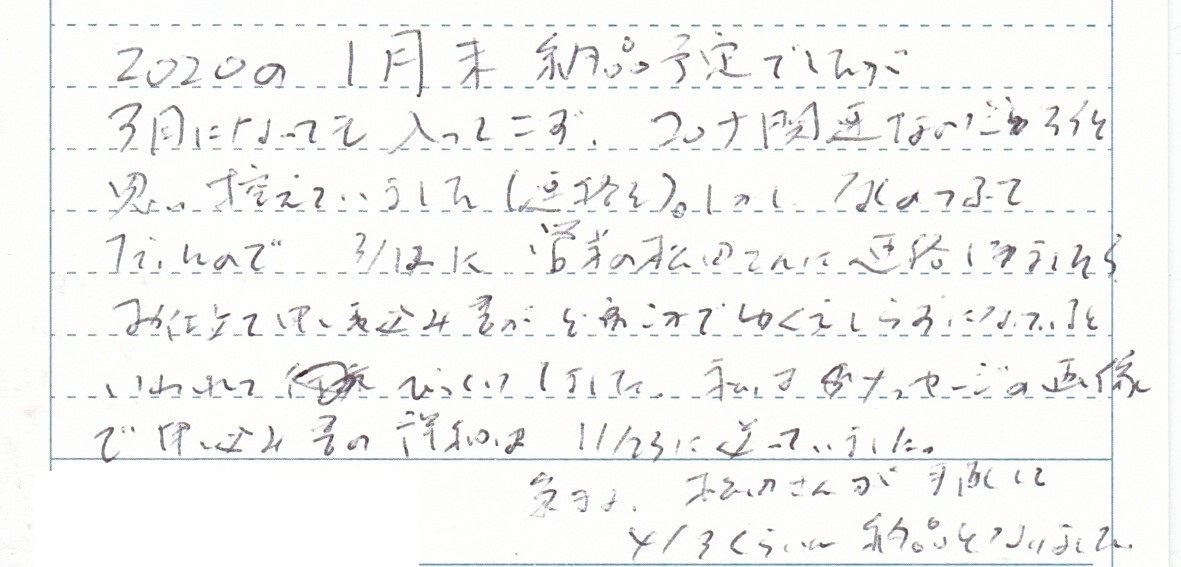 2020の1月末 納品予定でしたが
3月になっても入ってこず、コロナ関連なのだろうと
思い控えていました(連絡を)。しかし
ので 3/12に 営業の松田さんに連絡しましたら
お仕立て申し込み書が ゆくえしらずになっていると
いわれて びっくりしました。私はメッセージの画像
で申し込み書の詳細は 11/23に送っていました。
松田さんが
4/3くらいに 納品となりました。